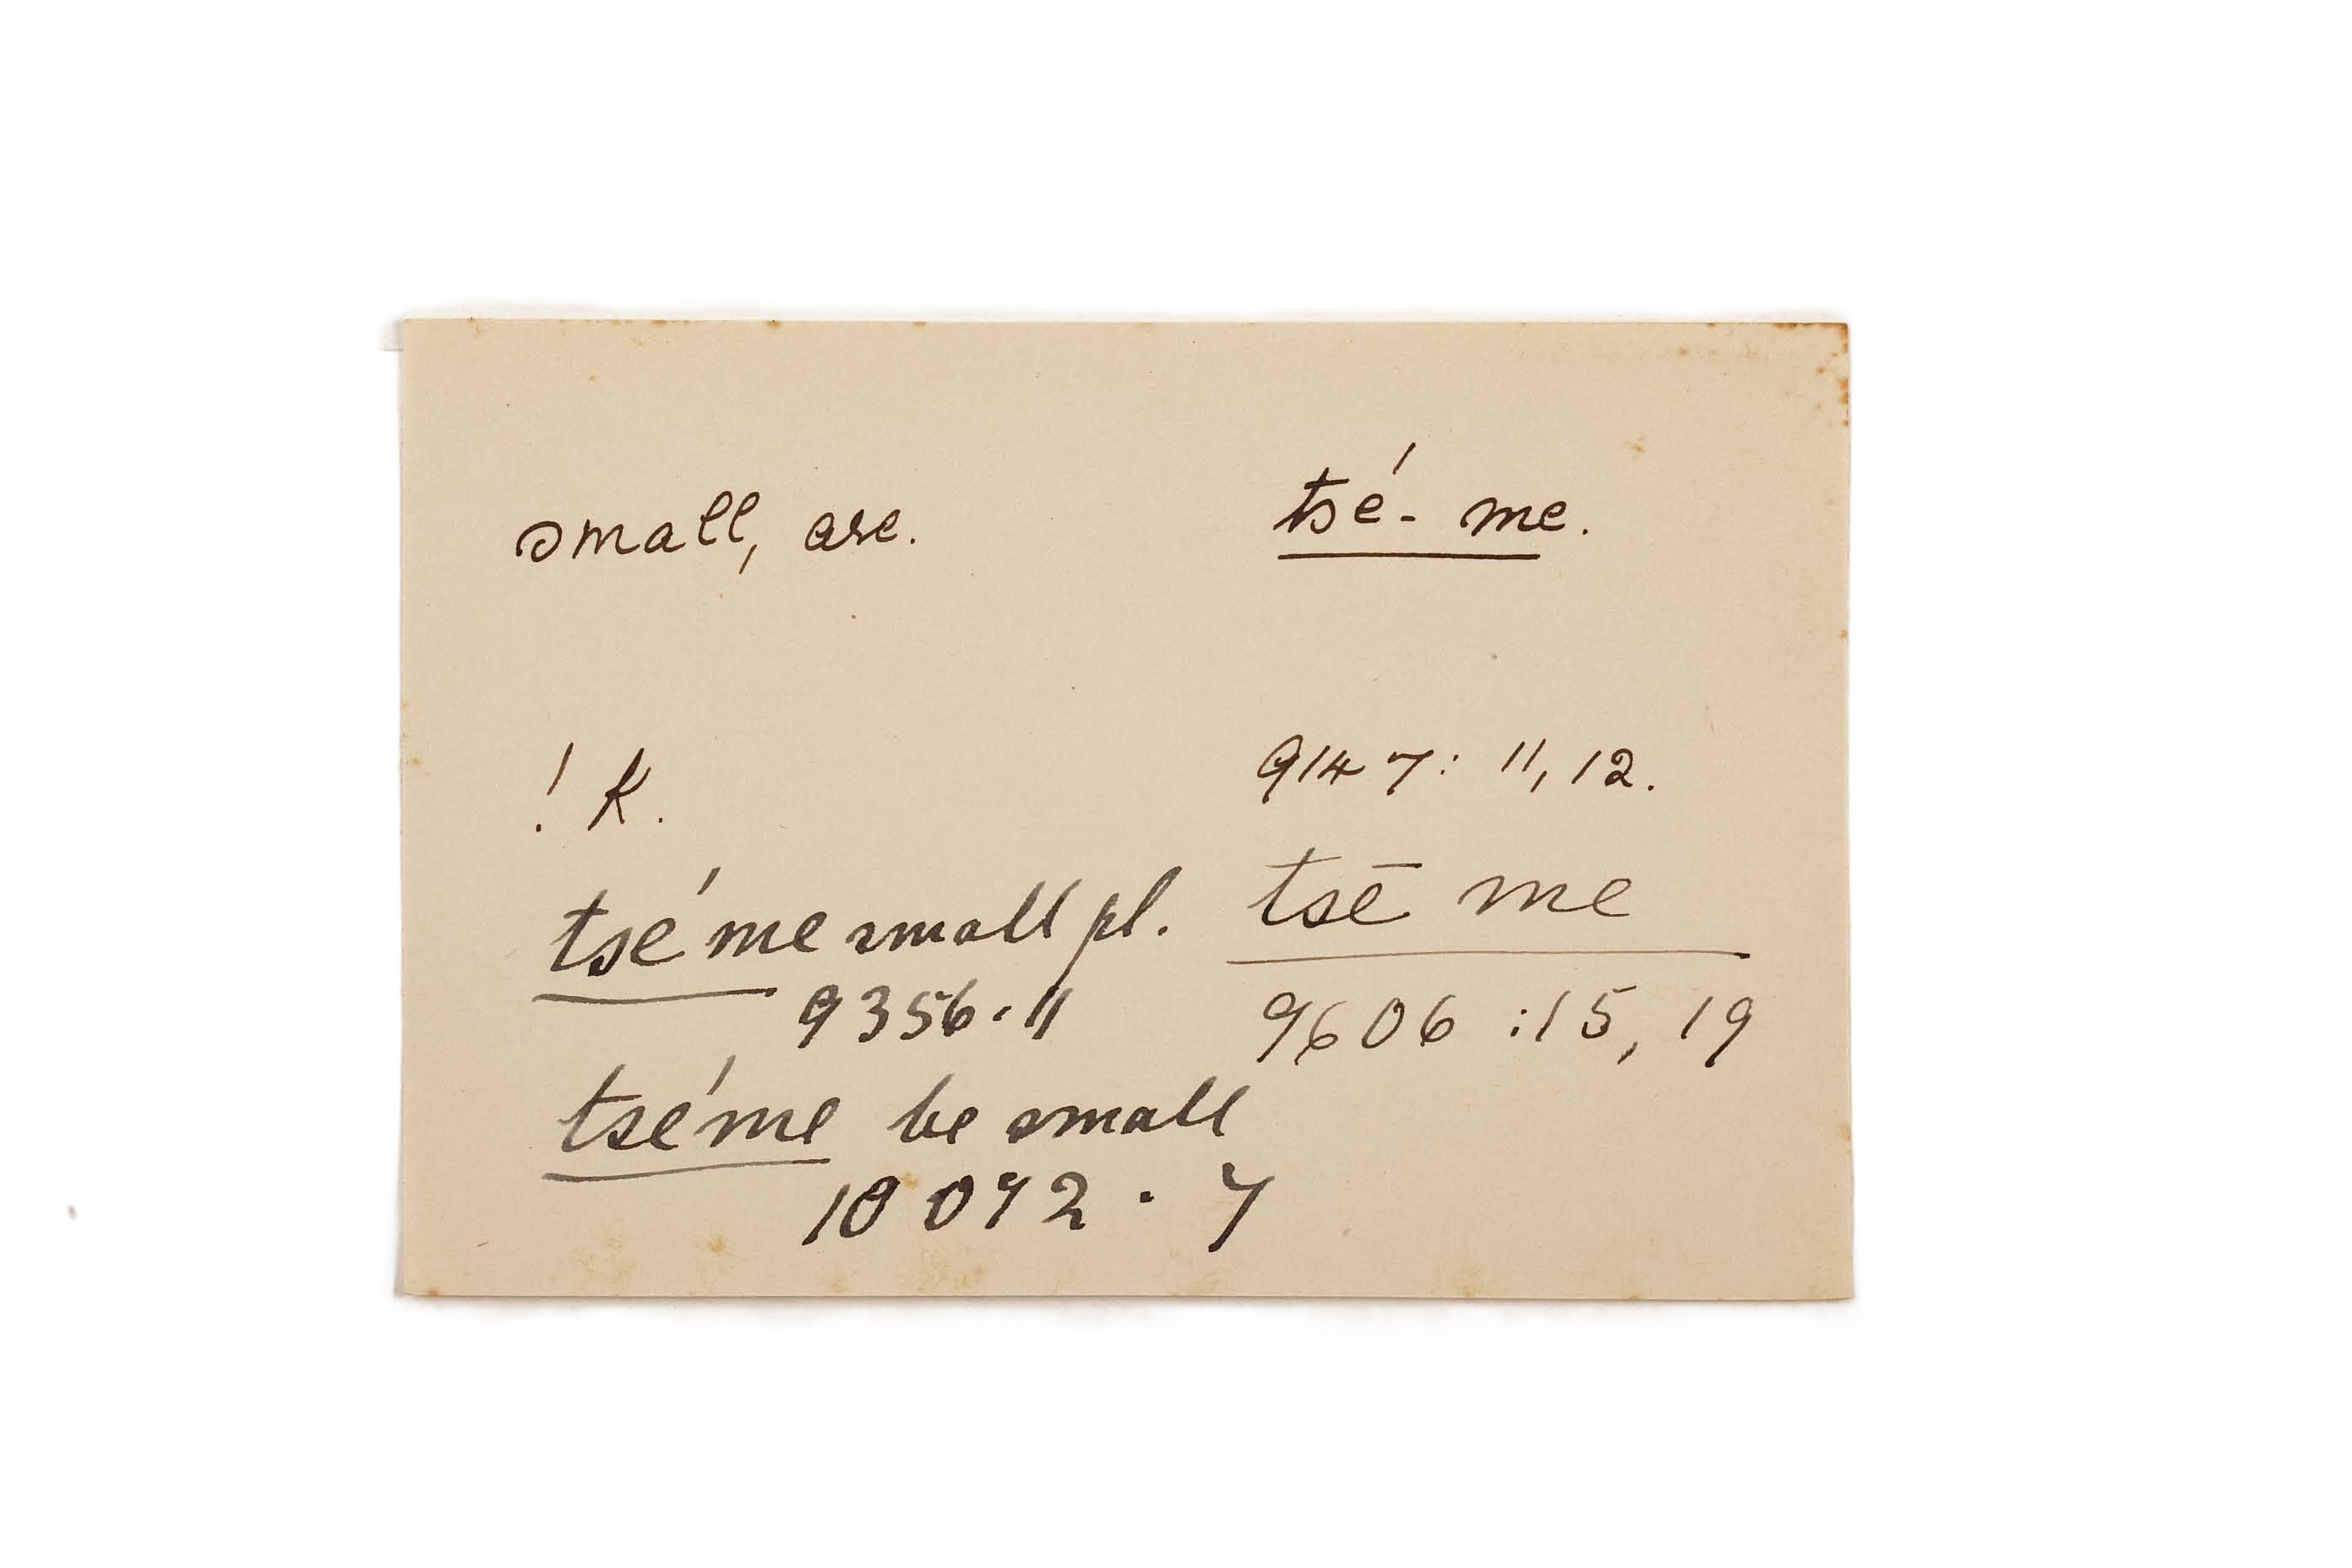 small, are.
tsé- me.
! K.
9147: 11, 12.
tsé me small pl.
9356. 11
tsē me
9606 :15, 19
tsé me be small
10092. 7